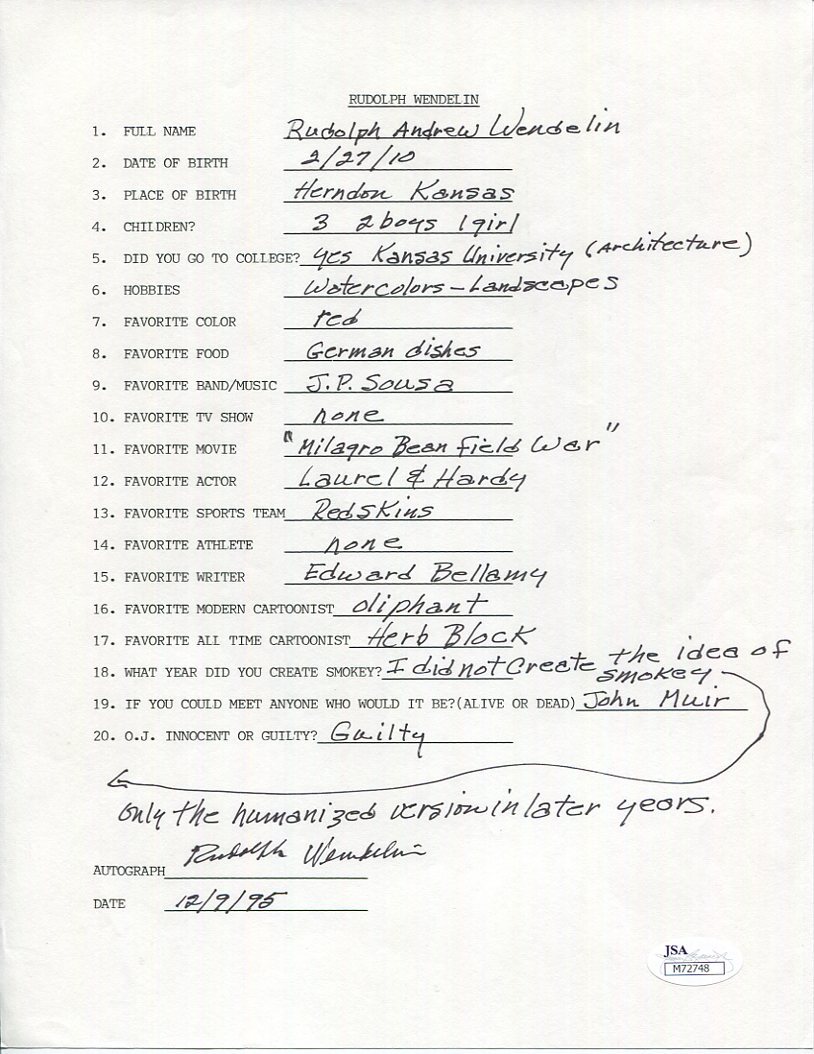 RUDOLPH WENDELIN
1. FULL NAME Rudolph Andrew Wendelin
2. DATE OF BIRTH 2/27/10
3. PLACE OF BIRTH Herndon Kansas
4. CHILDREN? 3 2 boys 1 girl
5. DID YOU GO TO COLLEGE? yes Kansas University (Architecture)
6. HOBBIES Watercolors - Landscapes
7. FAVORITE COLOR red
8. FAVORITE FOOD German dishes
9. FAVORITE BAND/MUSIC J.P. Sousa
10. FAVORITE TV SHOW none
11. FAVORITE MOVIE "Milagro Bean field War"
12. FAVORITE ACTOR Laurel & Hardy
13. FAVORITE SPORTS TEAM Redskins
14. FAVORITE ATHLETE none
15. FAVORITE WRITER Edward Bellamy
16. FAVORITE MODERN CARTOONIST oliphant
17. FAVORITE ALL TIME CARTOONIST Herb Block
18. WHAT YEAR DID YOU CREATE SMOKEY? I did not Create the idea of
smokey
19. IF YOU COULD MEET ANYONE WHO WOULD IT BE?(ALIVE OR DEAD) John Muir
20. O.J. INNOCENT OR GUILTY? Guilty
only the humanized version in later years.
AUTOGRAPH Rudolph Wendelin
DATE 12/9/95
JSA
M72748